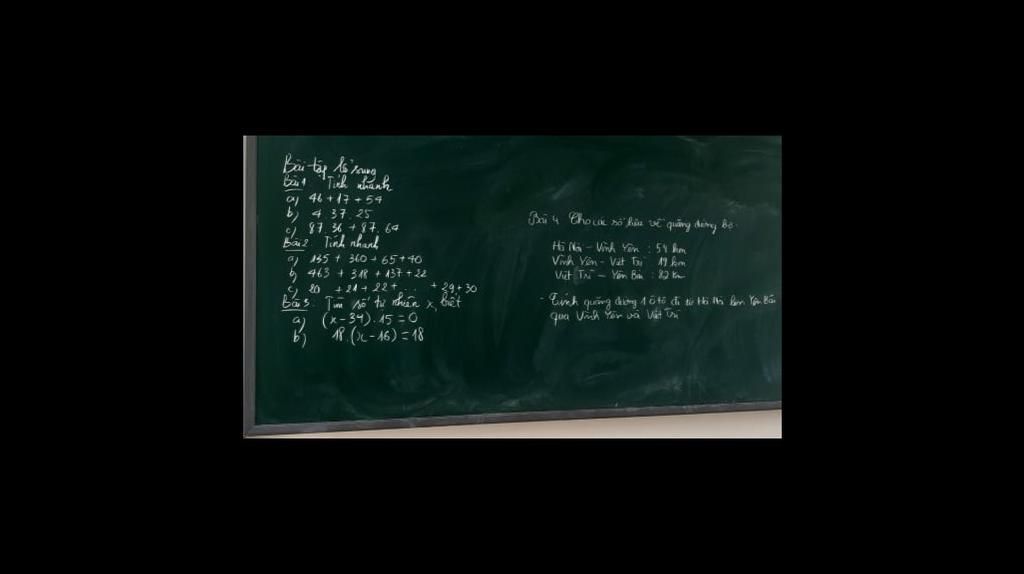 Bài tập bổ sung
Bài 1 Tính nhanh
a) 46 + 17 + 54
b) 4. 37. 25
c) 87.36 + 87. 64
Bài 2: Tính nhanh
a) 135 + 360 + 65 + 40
b) 463 + 318 + 137 + 22
c) 20 + 21 + 22 + ... + 29 + 30
Bài 3: Tìm số tự nhiên x, biết
a) (x - 34) . 15 = 0
b) 18. (x - 16) = 18
Bài 4 Cho các số liệu về quãng đường bộ.
Hà Nội - Vĩnh Yên : 54 km
Vĩnh Yên - Việt Trì 19 km
Việt Trì - Yên Bái : 82 km
- Tính quãng đường 1 ô tô đi từ Hà Nội lên Yên Bái
qua Vĩnh Yên và Việt Trì